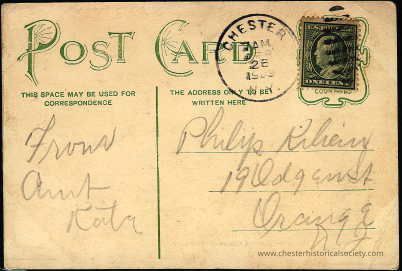 POST CARD
THIS SPACE MAY BE USED FOR
CORRESPONDENCE
THE ADDRESS ONLY TO BE
WRITTEN HERE
CHESTER
AM
28
N.Y.
ONE CENT
From
Aunt
Kate
Philip
19
Orange
N.J.
www.chesterhistoricalsociety.com